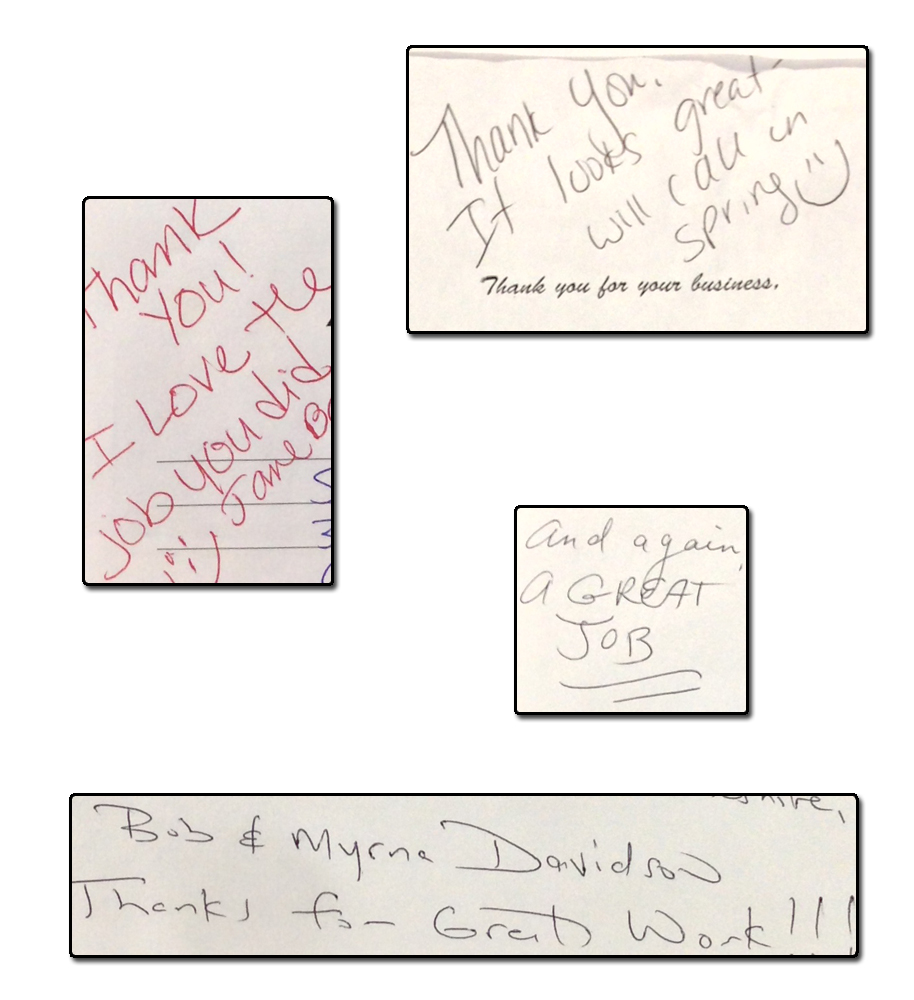 Thank You.
It looks great
will call in
spring
Thank you for your business.
Thank
You!
I Love the
job you did
Jane
And again,
A GREAT
JOB
Bob & Myrna Davidson
Thanks for Great Work!!!